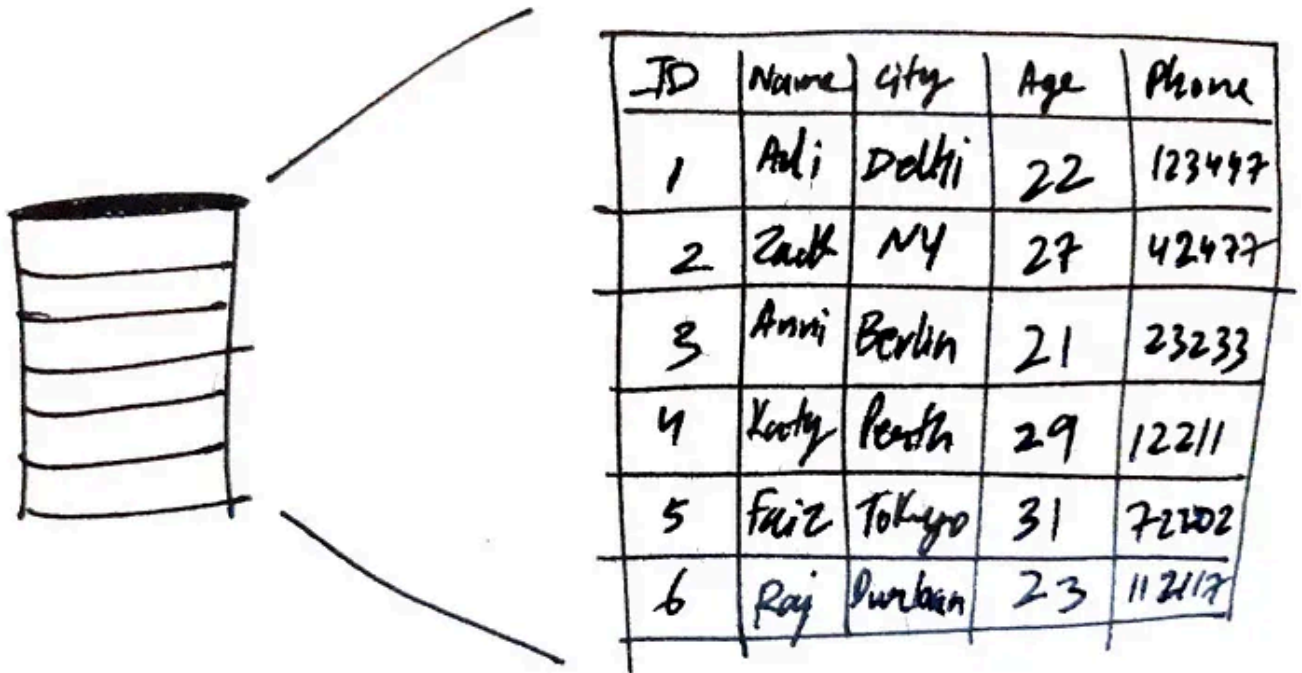 ID Name City Age Phone
1 Adi Delhi 22 123447
2 Zack NY 27 42477
3 Anni Berlin 21 23233
4 Katy Perth 29 12211
5 Faiz Tokyo 31 72202
6 Raj Durban 23 112117